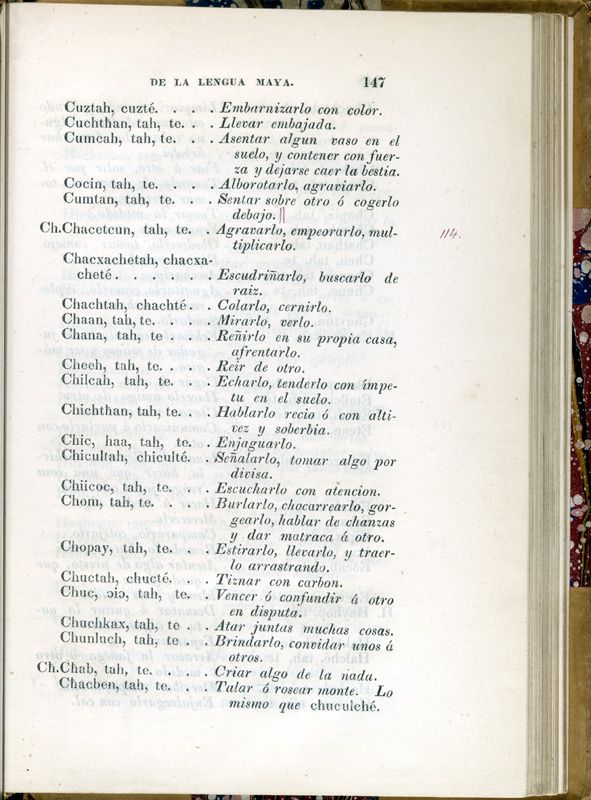 DE LA LENGUA MAYA. 147
Cuztah, cuzté. . . . Embarnizarlo con color.
Cuchthan, tah, te. . . Llevar embajada.
Cumcah, tah, te. . . Asentar algun vaso en el
suelo, y contener con fuer-
za y dejarse caer la bestia.
Cocin, tah, te. . . . Alborotarlo, agraviarlo.
Cumtan, tah, te. . . Sentar sobre otro ó cogerlo
debajo.
Ch.Chacetcun, tah, te. . Agravarlo, empeorarlo, mul- 114.
tiplicarlo.
Chacxachetah, chacxa-
cheté. . . . . . . Escudriñarlo, buscarlo de
raiz.
Chachtah, chachté. . . Colarlo, cernirlo.
Chaan, tah, te. . . . Mirarlo, verlo.
Chana, tah, te . . . Reñirlo en su propia casa,
afrentarlo.
Cheeh, tah, te. . . . Reir de otro.
Chilcah, tah, te. . . Echarlo, tenderlo con ímpe-
tu en el suelo.
Chichthan, tah, te. . . Hablarlo recio ó con alti-
vez y soberbia.
Chic, haa, tah, te. . Enjaguarlo.
Chicultah, chiculté. . Señalarlo, tomar algo por
divisa.
Chiicoc, tah, te. . . Escucharlo con atencion.
Chom, tah, te. . . . Burlarlo, chocarrearlo, gor-
gearlo, hablar de chanzas
y dar matraca á otro.
Chopay, tah, te. . . Estirarlo, llevarlo, y traer-
lo arrastrando.
Chuctah, chucté. . . Tiznar con carbon.
Chuc, ɔiɔ, tah, te. . Vencer ó confundir á otro
en disputa.
Chuchkax, tah, te . . Atar juntas muchas cosas.
Chunluch, tah, te . . Brindarlo, convidar unos á
otros.
Ch.Chab, tah, te. . . . Criar algo de la nada.
Chacben, tah, te. . . Talar ó rosear monte. Lo
mismo que chuculché.